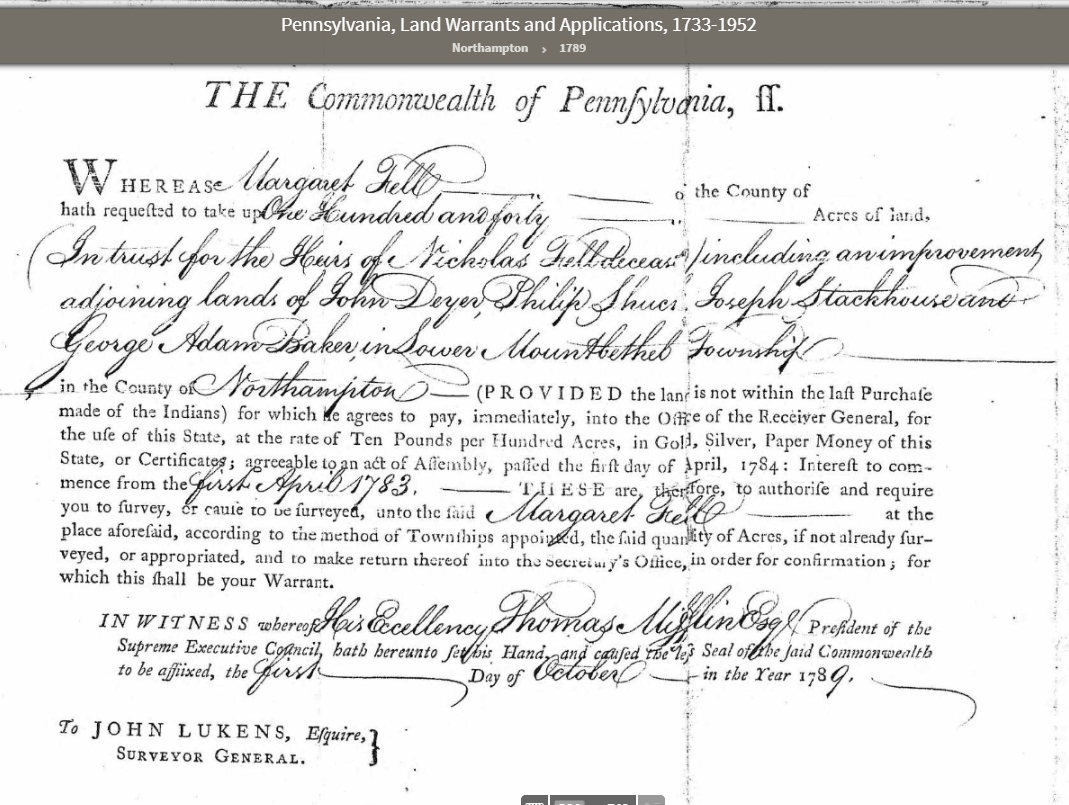 Pennsylvania, Land Warrants and Applications, 1733-1952
Northampton › 1789
THE Commonwealth of Pennſylvania, ſſ.
WHEREAS Margaret Fell o the County of
hath requeſted to take up One Hundred and forty Acres of land,
(In trust for the Heirs of Nicholas Fell deceas'd) including an improvement
adjoining lands of John Deyer, Philip Joseph Stackhouse and
George Adam Baker, in Lower Mountbethel Township
in the County of Northampton (PROVIDED the land is not within the laſt Purchaſe
made of the Indians) for which he agrees to pay, immediately, into the Office of the Receiver General, for
the uſe of this State, at the rate of Ten Pounds per Hundred Acres, in Gold, Silver, Paper Money of this
State, or Certificates; agreeable to an act of Aſſembly, paſſed the firſt day of April, 1784: Intereſt to com-
mence from the first April 1783. THESE are, therefore, to authoriſe and require
you to ſurvey, or cauſe to be ſurveyed, unto the ſaid Margaret Fell at the
place aforeſaid, according to the method of Townſhips appointed, the ſaid quantity of Acres, if not already ſur-
veyed, or appropriated, and to make return thereof into the Secretary's Office, in order for confirmation; for
which this ſhall be your Warrant.
IN WITNESS whereof His Excellency Thomas Mifflin Esqr Preſident of the
Supreme Executive Council, hath hereunto ſet his Hand, and cauſed the leſs Seal of the ſaid Commonwealth
to be affixed, the first Day of October in the Year 1789.
To JOHN LUKENS, Eſquire,
SURVEYOR GENERAL.